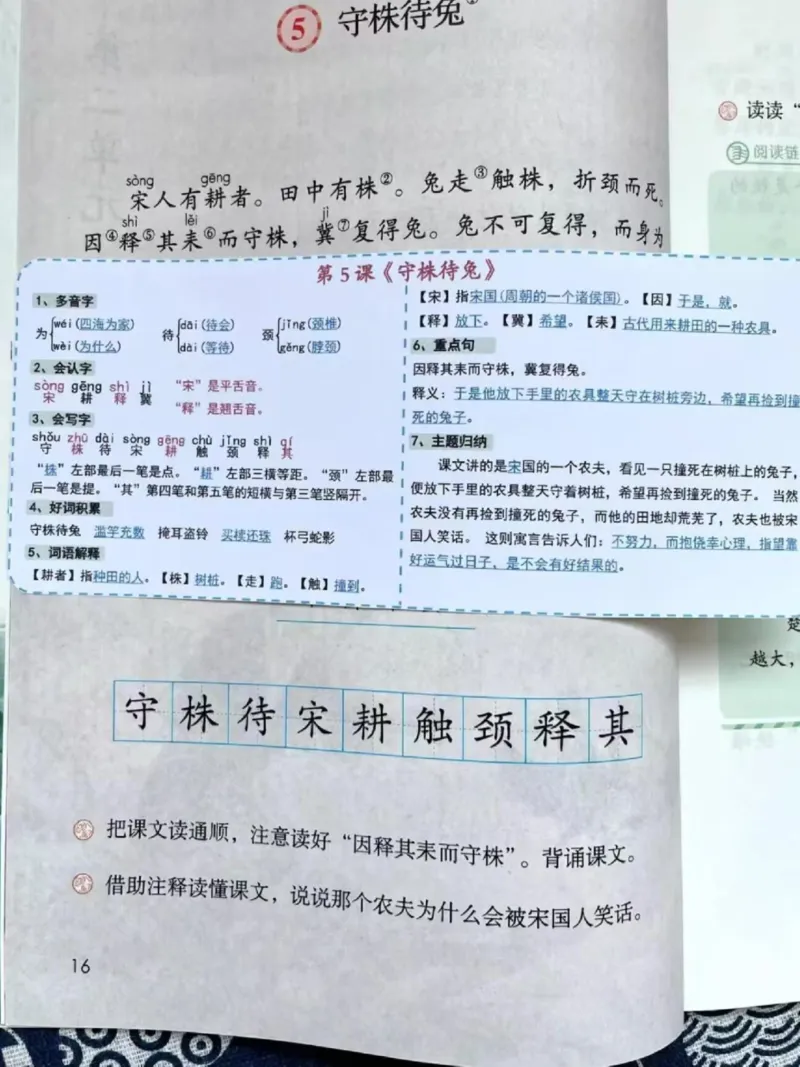 5 守株待兔①
sòng gēng
宋人有耕者。田中有株②。兔走③触株，折颈而死。
shì lěi jì
因④释⑤其耒⑥而守株，冀⑦复得兔。兔不可复得，而身为
读读“
阅读链
第5课《守株待兔》
1、多音字
为 wéi(四海为家) wèi(为什么) 待 dāi(待会) dài(等待) 颈 jǐng(颈椎) gěng(脖颈)
2、会认字
sòng gēng shì jì
宋 耕 释 冀
“宋”是平舌音。
“释”是翘舌音。
3、会写字
shǒu zhū dài sòng gēng chù jǐng shì qí
守 株 待 宋 耕 触 颈 释 其
“株”左部最后一笔是点。“耕”左部三横等距。“颈”左部最
后一笔是提。“其”第四笔和第五笔的短横与第三笔竖隔开。
4、好词积累
守株待兔 滥竽充数 掩耳盗铃 买椟还珠 杯弓蛇影
5、词语解释
【耕者】指种田的人。【株】树桩。【走】跑。【触】撞到。
【宋】指宋国(周朝的一个诸侯国)。【因】于是，就。
【释】放下。【冀】希望。【耒】古代用来耕田的一种农具。
6、重点句
因释其耒而守株，冀复得兔。
释义：于是他放下手里的农具整天守在树桩旁边，希望再捡到撞
死的兔子。
7、主题归纳
课文讲的是宋国的一个农夫，看见一只撞死在树桩上的兔子，
便放下手里的农具整天守着树桩，希望再捡到撞死的兔子。当然
农夫没有再捡到撞死的兔子，而他的田地却荒芜了，农夫也被宋
国人笑话。这则寓言告诉人们：不努力，而抱侥幸心理，指望靠
好运气过日子，是不会有好结果的。
楚
越大，
守株待宋耕触颈释其
把课文读通顺，注意读好“因释其耒而守株”。背诵课文。
借助注释读懂课文，说说那个农夫为什么会被宋国人笑话。
16